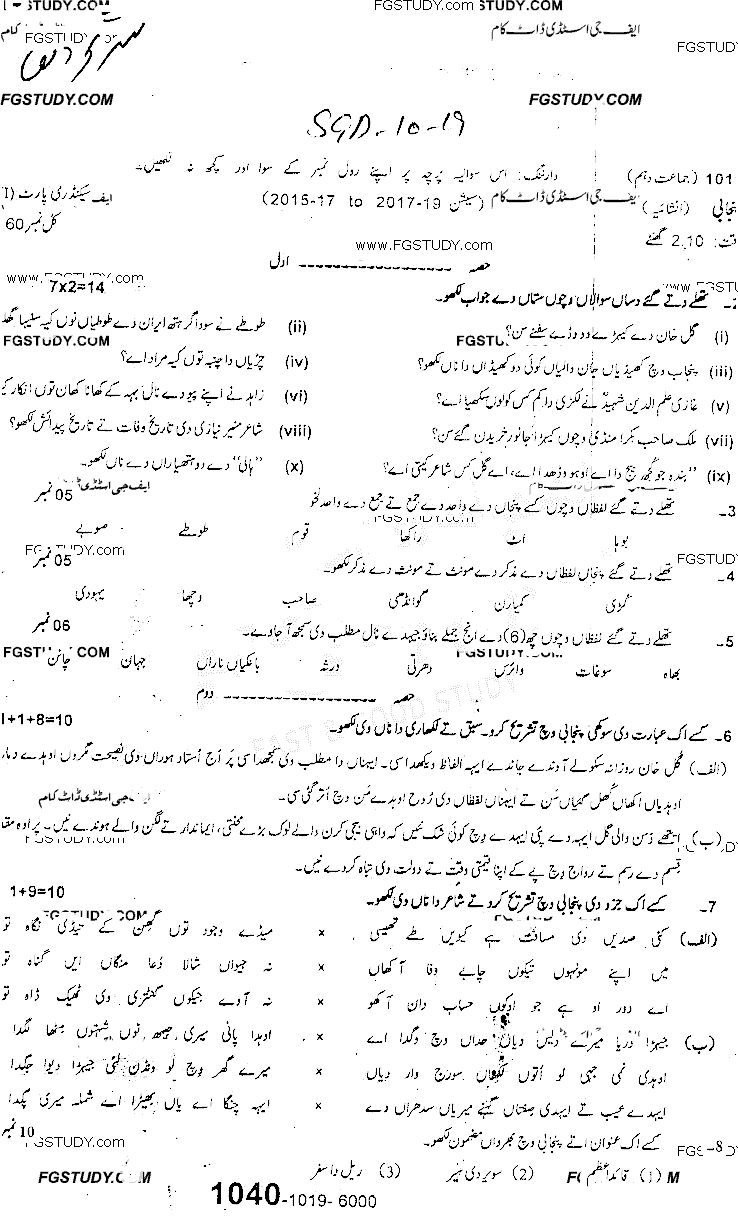 FGSTUDY.com
ایف جی اسٹڈی ڈاٹ کام
FGSTUDY.COM FGSTUDY.COM
SGD-10-19
101 (جماعت دہم) وارننگ: اس سوالیہ پرچہ پر اپنے رول نمبر کے سوا اور کچھ نہ لکھیں۔
پنجابی (انشائیہ) ایف جی اسٹڈی ڈاٹ کام (سیشن 2015-17 to 2017-19) سیکنڈری پارٹ
وقت: 2.10 گھنٹے کل نمبر 60
www.FGSTUDY.com
حصہ ---------------- اول
تھلے دتے گئے دساں سوالاں وچوں ستاں دے جواب لکھو۔ 7x2=14
(i) گل خان دے کیہڑے دو وڈے سفنے سن؟ (ii) طوطے نے سوداگر ہتھ ایران دے طوطیاں نوں کیہ سنیہا
(iii) پنجاب وچ کھیڈیاں جان والیاں کوئی دو کھیڈاں دا ناں لکھو؟ (iv) چڑیاں دا چنبہ توں کیہ مراد اے؟
(v) غازی علم الدین شہیدؒ نے لکڑی دا کم کس کولوں سکھیا اے؟ (vi) زاہد نے اپنے پیو دے نال بہہ کے کھانا کھان توں انکار
(vii) ملک صاحب بکرا منڈی وچوں کیہڑا جانور خریدن گئے سن؟ (viii) شاعر منیر نیازی دی تاریخ وفات تے تاریخ پیدائش لکھو؟
(ix) "بندہ جو کجھ بیج دا اے اوہو وڈھدا اے، اے گل کس شاعر کیتی اے؟ (x) "ہالی" دے دو ہتھیاراں دے ناں لکھو۔
3- تھلے دتے گئے لفظاں وچوں کسے پنجاں دے واحد دے جمع تے جمع دے واحد لکھو 05 نمبر
بوہا اٹ راکھا قوم طوطے صوبے
4- تھلے دتے گئے پنجاں لفظاں دے مذکر دے مونث تے مونث دے مذکر لکھو۔ 05 نمبر
کڑی کمیارن گوانڈھی صاحب وچھا یہودی
5- تھلے دتے گئے لفظاں وچوں چھ (6) دے انج جملے بناؤ جیہدے نال مطلب دی سمجھ آ جاوے۔ 06 نمبر
بھاہ سوغات وائرس دھرتی ورثہ بانکیاں ناراں جہان چانن
حصہ ---------------- دوم
6- کسے اک عبارت دی سوکھی پنجابی وچ تشریح کرو۔ سبق تے لکھاری دا ناں وی لکھو۔ 1+1+8=10
(الف) گل خان روزانہ سکولے آوندے جاندے ایہہ الفاظ ویکھدا سی۔ ایہناں دا مطلب وی سمجھدا سی پر اج استاد ہوراں دی نصیحت مگروں اوہدے
اوہدیاں اکھاں کھل گئیاں سن تے ایہناں لفظاں دی روح اوہدے من وچ اتر گئی سی۔
(ب) ایتھے دسن والی گل ایہہ دے پئی ایہدے وچ کوئی شک نئیں کہ واہی بیجی کرن والے لوک بڑے محنتی، ایماندار تے لگن والے ہوندے نیں۔ پر اوہ
قسم دے رسم تے رواج وچ پے کے اپنا قیمتی وقت تے دولت وی تباہ کردے نیں۔
7- کسے اک جزو دی پنجابی وچ تشریح کرو تے شاعر دا ناں وی لکھو۔ 1+9=10
(الف) کئی صدیں دی مسافت ہے کیویں طے تھیسی x میڈے وجود توں گھن کے تیڈی نگاہ تو
میں اپنے مونہوں تیکوں چاہے وفا آکھاں x نہ جیواں شالا دعا منگاں ایں گناہ تو
اے دور او ہے جو اوکوں حساب دان آکھو x نہ آوے جیکوں گنتری وی ٹھیک ڈاہ تو
(ب) جیہڑا دریا میرے دیس دیاں حداں وچ وگدا اے x اوہدا پانی میری جیبھ نوں شہتوں مٹھا لگدا
اوہدی نمی جہی لو اتوں لکھاں سورج وار دیاں x میرے گھر وچ لو ونڈن لئی جیہڑا دیوا جگدا
ایہدے عیب تے ایہدی صفتاں گہنے میریاں سدھراں دے x ایہہ چنگا اے یاں بھیڑا اے شملہ میری پگدا
8- کسے اک عنوان اتے پنجابی وچ بھرواں مضمون لکھو۔ 10 نمبر
(1) قائداعظم (2) سویر دی سیر (3) ریل دا سفر
1040-1019-6000